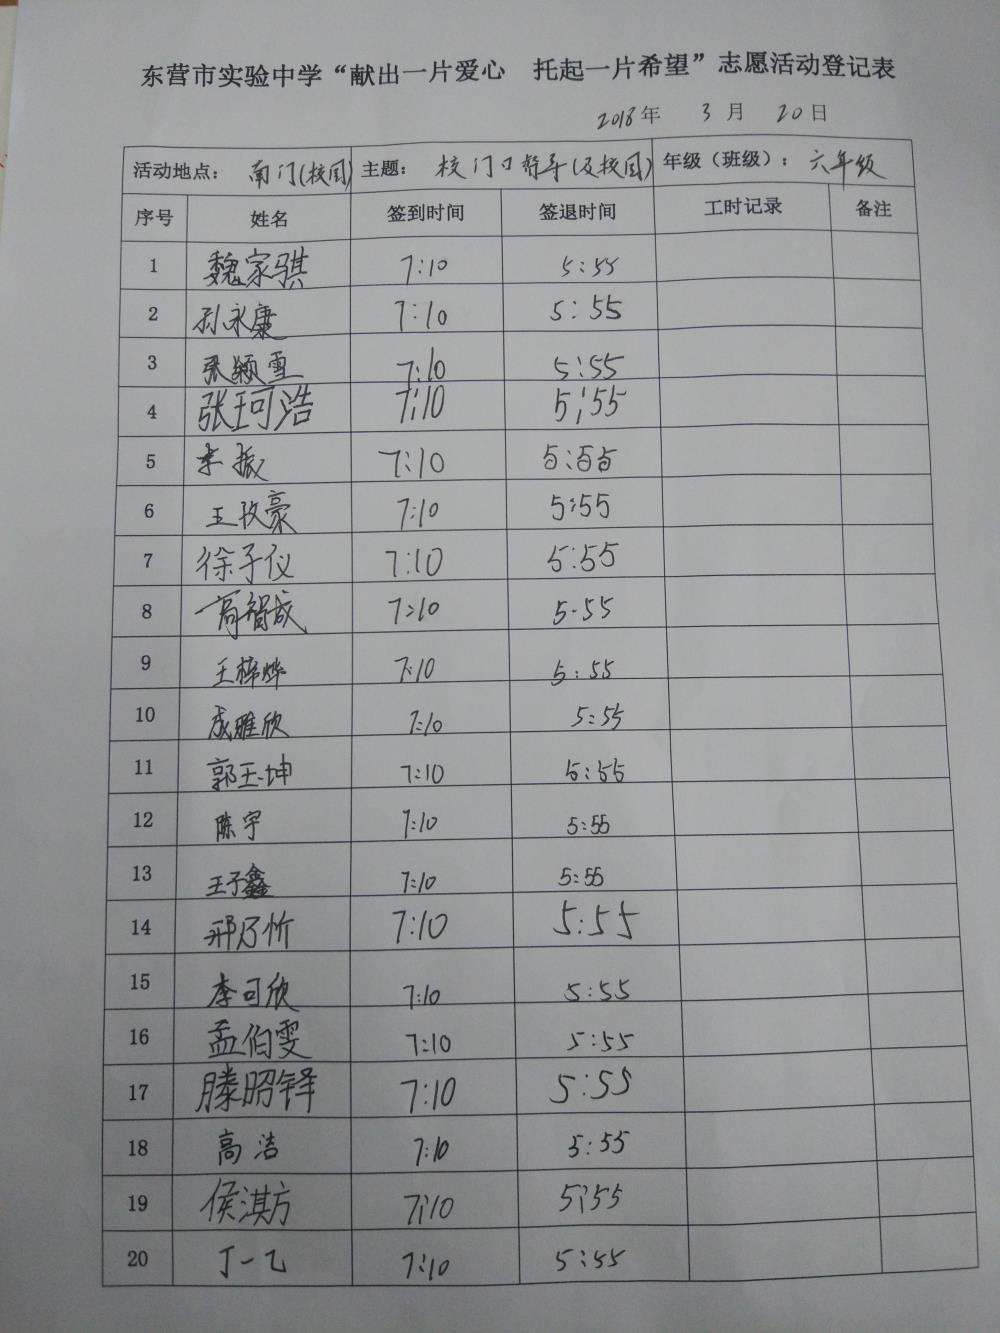 东营市实验中学“献出一片爱心　托起一片希望”志愿活动登记表
2018年 3月 20日
活动地点： 南门(校园) 主题： 校门口督导(及校园) 年级（班级）： 六年级
序号 姓名 签到时间 签退时间 工时记录 备注
1 魏家骐 7:10 5:55
2 孙永康 7:10 5:55
3 张颖雪 7:10 5:55
4 张珂浩 7:10 5:55
5 李振 7:10 5:55
6 王孜豪 7:10 5:55
7 徐子仪 7:10 5:55
8 高智成 7:10 5:55
9 王梓烨 7:10 5:55
10 成雅欣 7:10 5:55
11 郭玉坤 7:10 5:55
12 陈宇 7:10 5:55
13 王子鑫 7:10 5:55
14 邢乃忻 7:10 5:55
15 李可欣 7:10 5:55
16 孟伯雯 7:10 5:55
17 滕昭铎 7:10 5:55
18 高洁 7:10 5:55
19 侯淇方 7:10 5:55
20 丁一乙 7:10 5:55